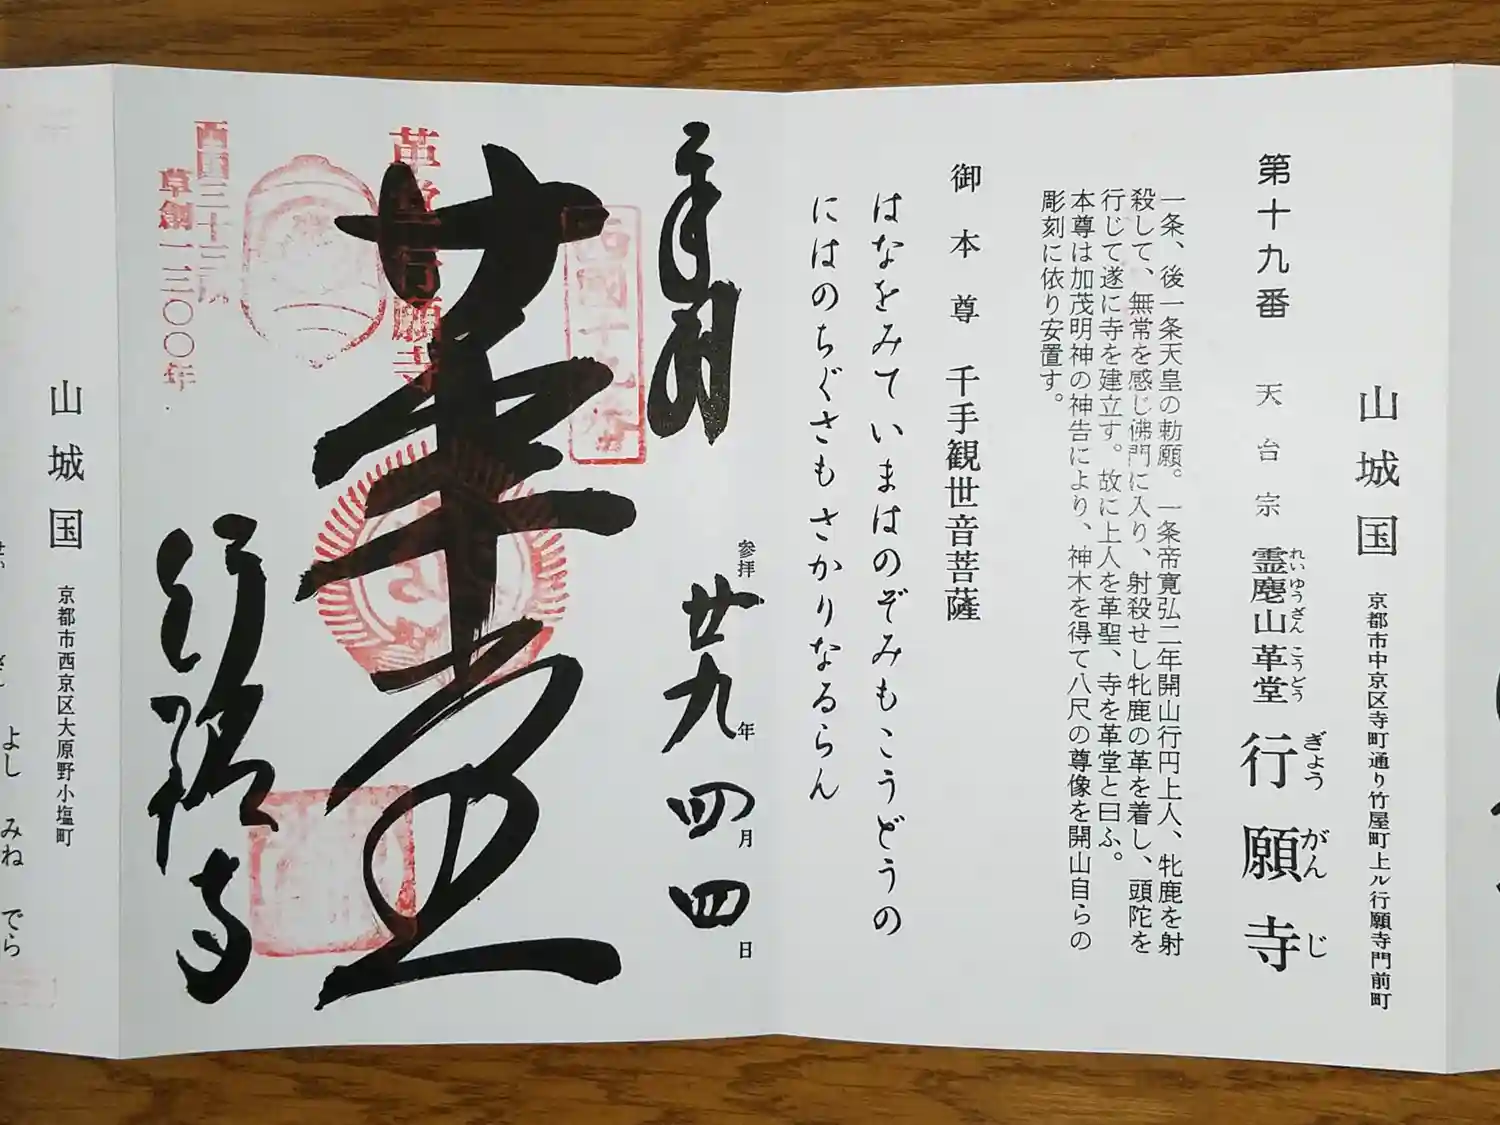 山城国
京都市中京区寺町通り竹屋町上ル行願寺門前町
第十九番 天台宗 霊麀山革堂 行願寺
れいゆうざん こうどう ぎょうがんじ
一条、後一条天皇の勅願。一条帝寛弘二年開山行円上人、牝鹿を射
殺して、無常を感じ佛門に入り、射殺せし牝鹿の革を着し、頭陀を
行じて遂に寺を建立す。故に上人を革聖、寺を革堂と曰ふ。
本尊は加茂明神の神告により、神木を得て八尺の尊像を開山自らの
彫刻に依り安置す。
御本尊 千手観世音菩薩
はなをみていまはのぞみもこうどうの
にはのちぐさもさかりなるらん
奉拝
参拝 廿九年 四月 四日
西國十九番
革堂行願寺
革堂
行願寺
西国三十三所
草創一三〇〇年
山城国
京都市西京区大原野小塩町
よしみねでら